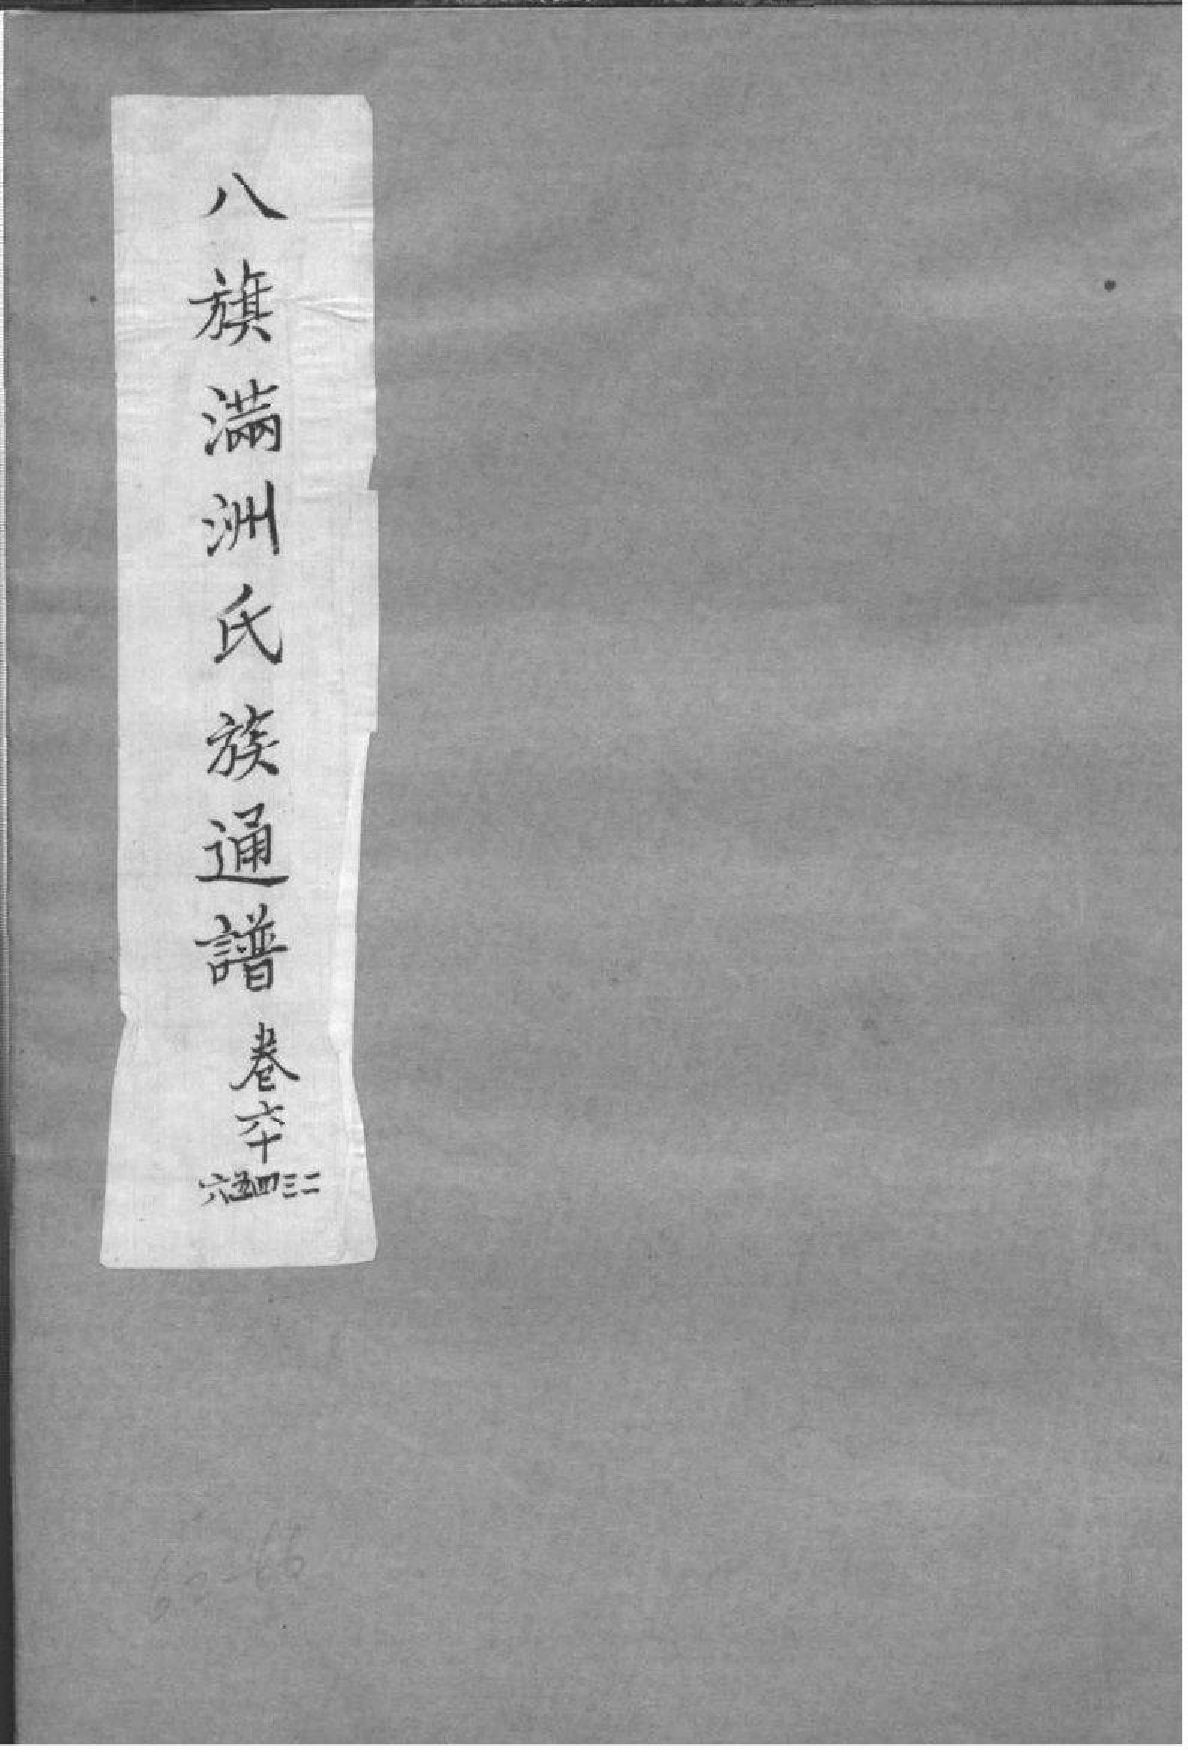 八旗滿洲氏族通譜
卷六十
二三四五六
62-66